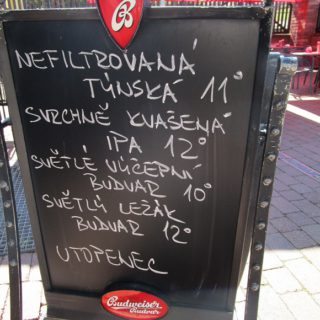 B
NEFILTROVANÁ
TÝNSKÁ 11°
SVRCHNĚ KVAŠENÁ
IPA 12°
SVĚTLÉ VÝČEPNÍ
BUDVAR 10°
SVĚTLÝ LEŽÁK
BUDVAR 12°
UTOPENEC
Budweiser
Budvar